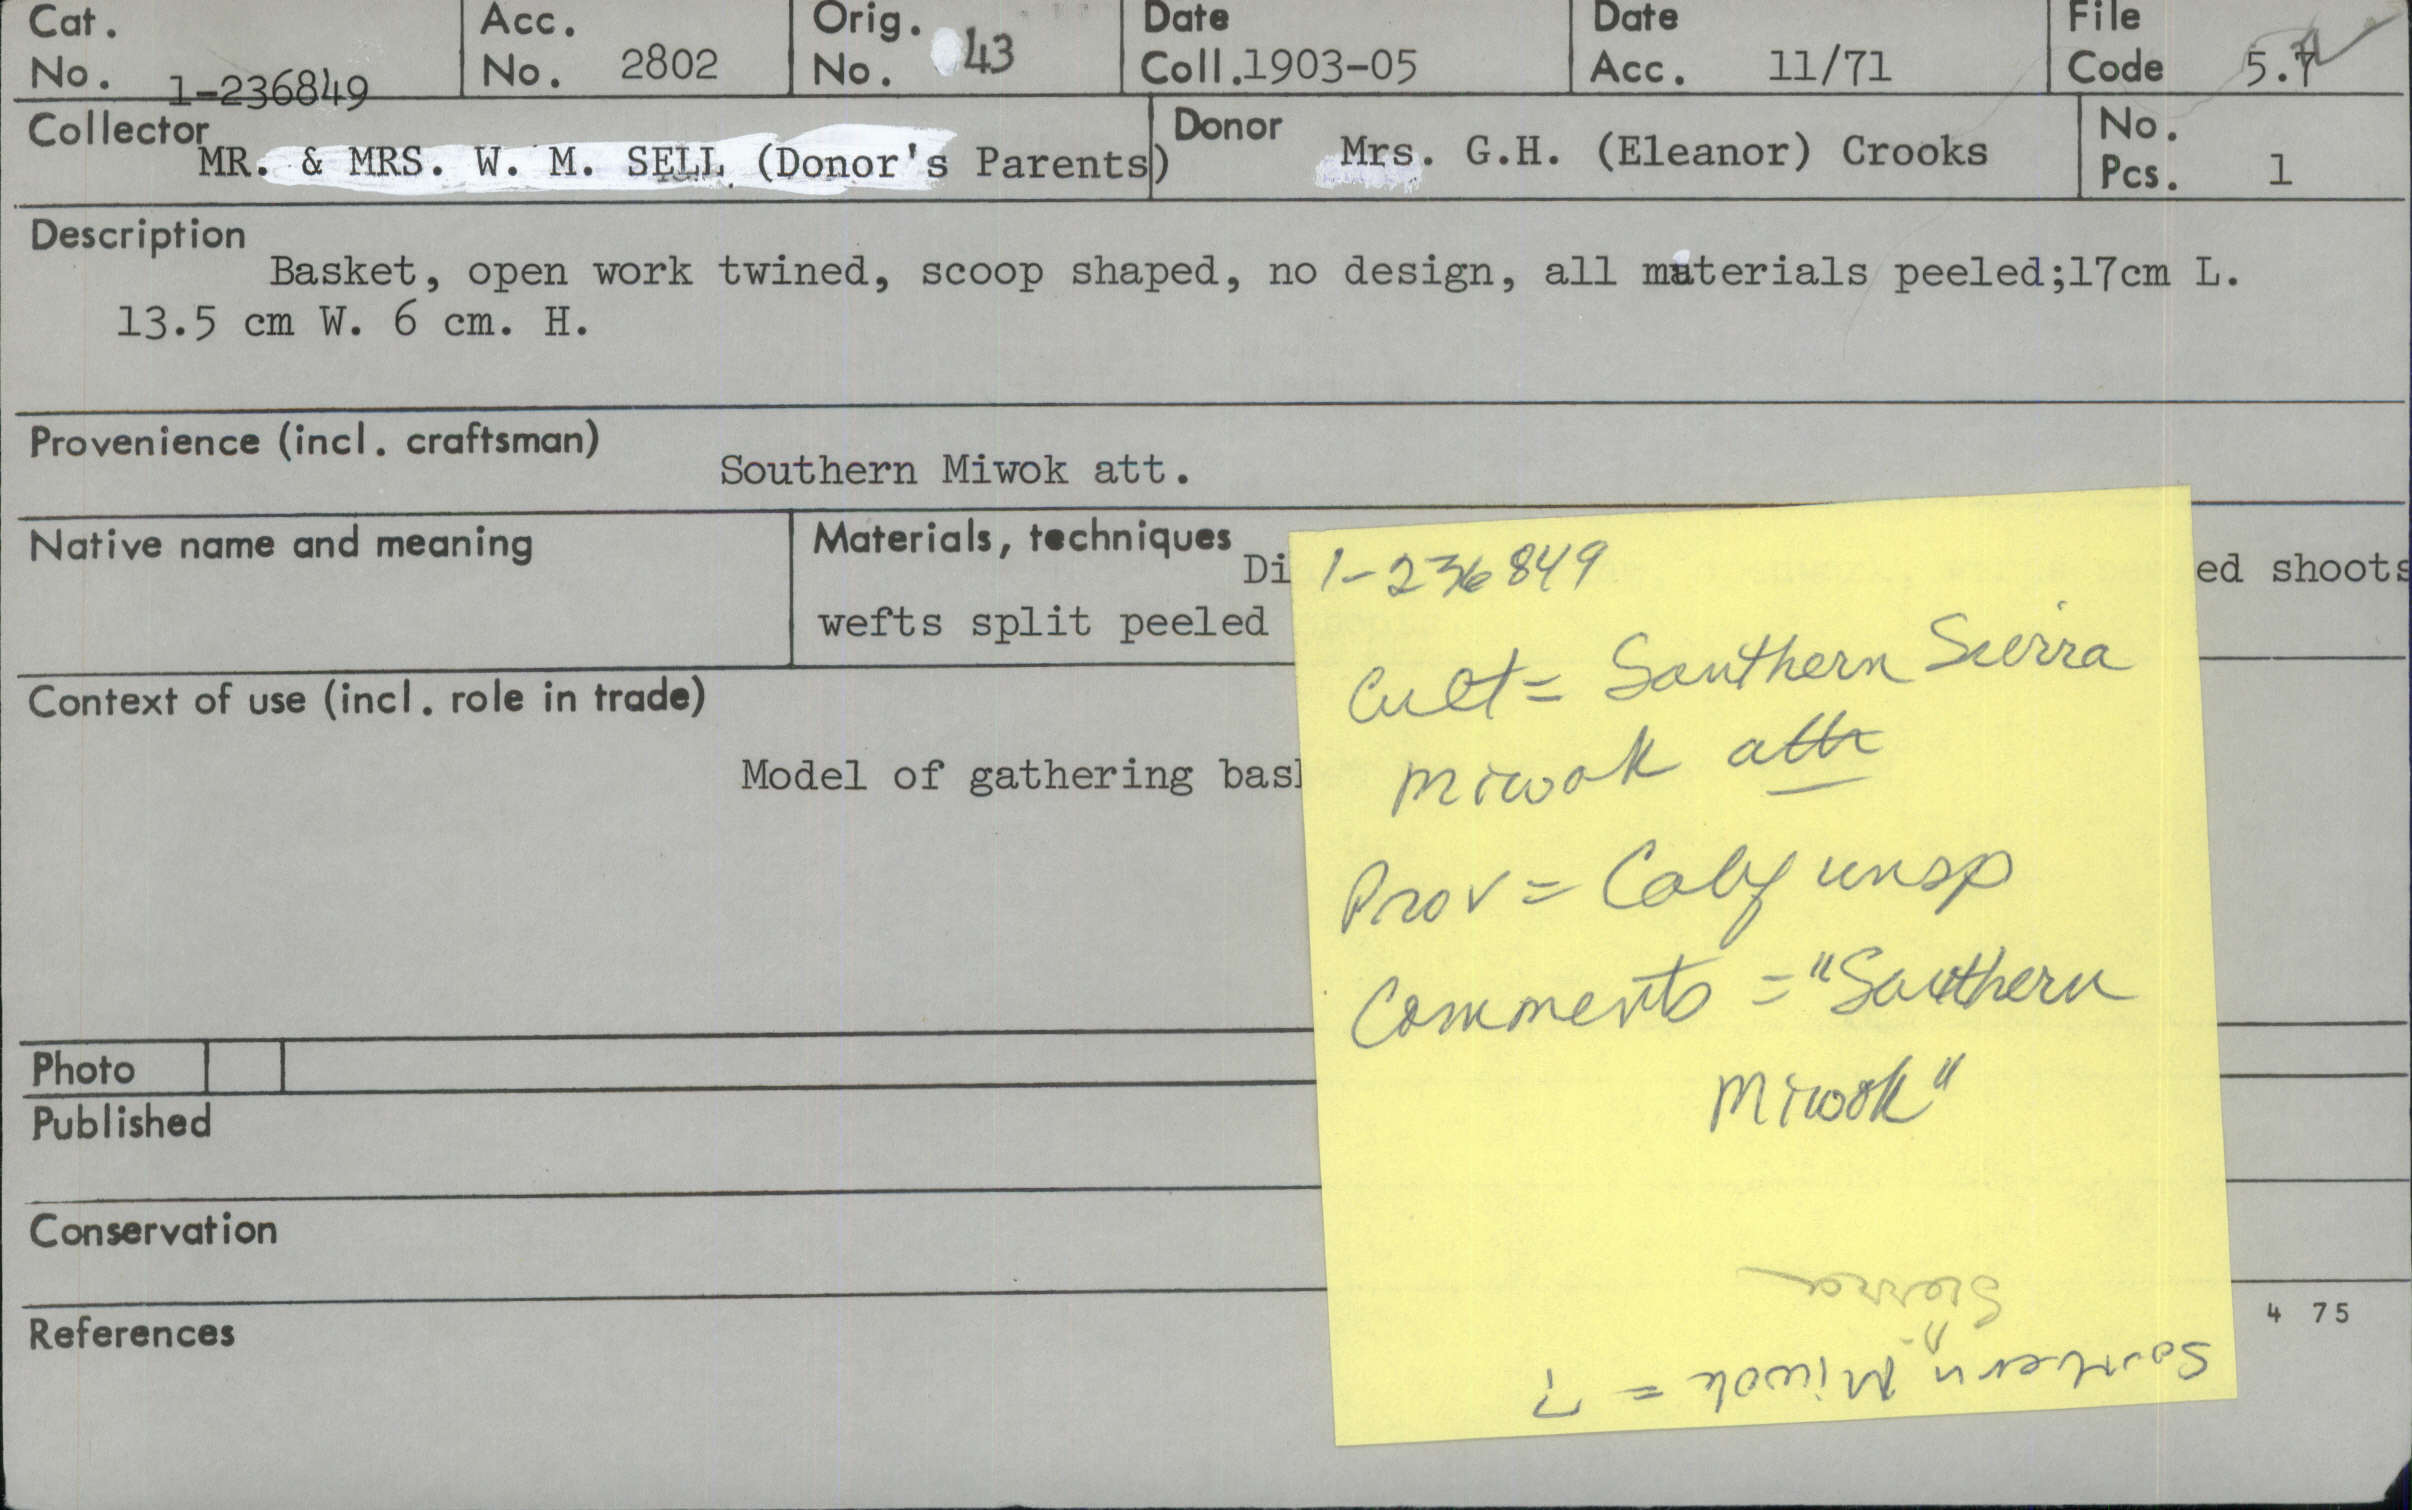 Cat. No. 1-236849
Acc. No. 2802
Orig. No. 43
Date Coll. 1903-05
Date Acc. 11/71
File Code 5.
Collector MR. & MRS. W. M. SELL (Donor's Parents)
Donor Mrs. G.H. (Eleanor) Crooks
No. Pcs. 1
Description
Basket, open work twined, scoop shaped, no design, all materials peeled;17cm L.
13.5 cm W. 6 cm. H.
Provenience (incl. craftsman)
Southern Miwok att.
Native name and meaning
Materials, techniques
ed shoots
wefts split peeled
Context of use (incl. role in trade)
Model of gathering
Photo
Published
Conservation
References
4 75
1-236849
Cult = Southern Sierra
Miwok attr
Prov = Calif unsp
Comments = "Southern
Miwok"
Southern Miwok = ?
Sierra